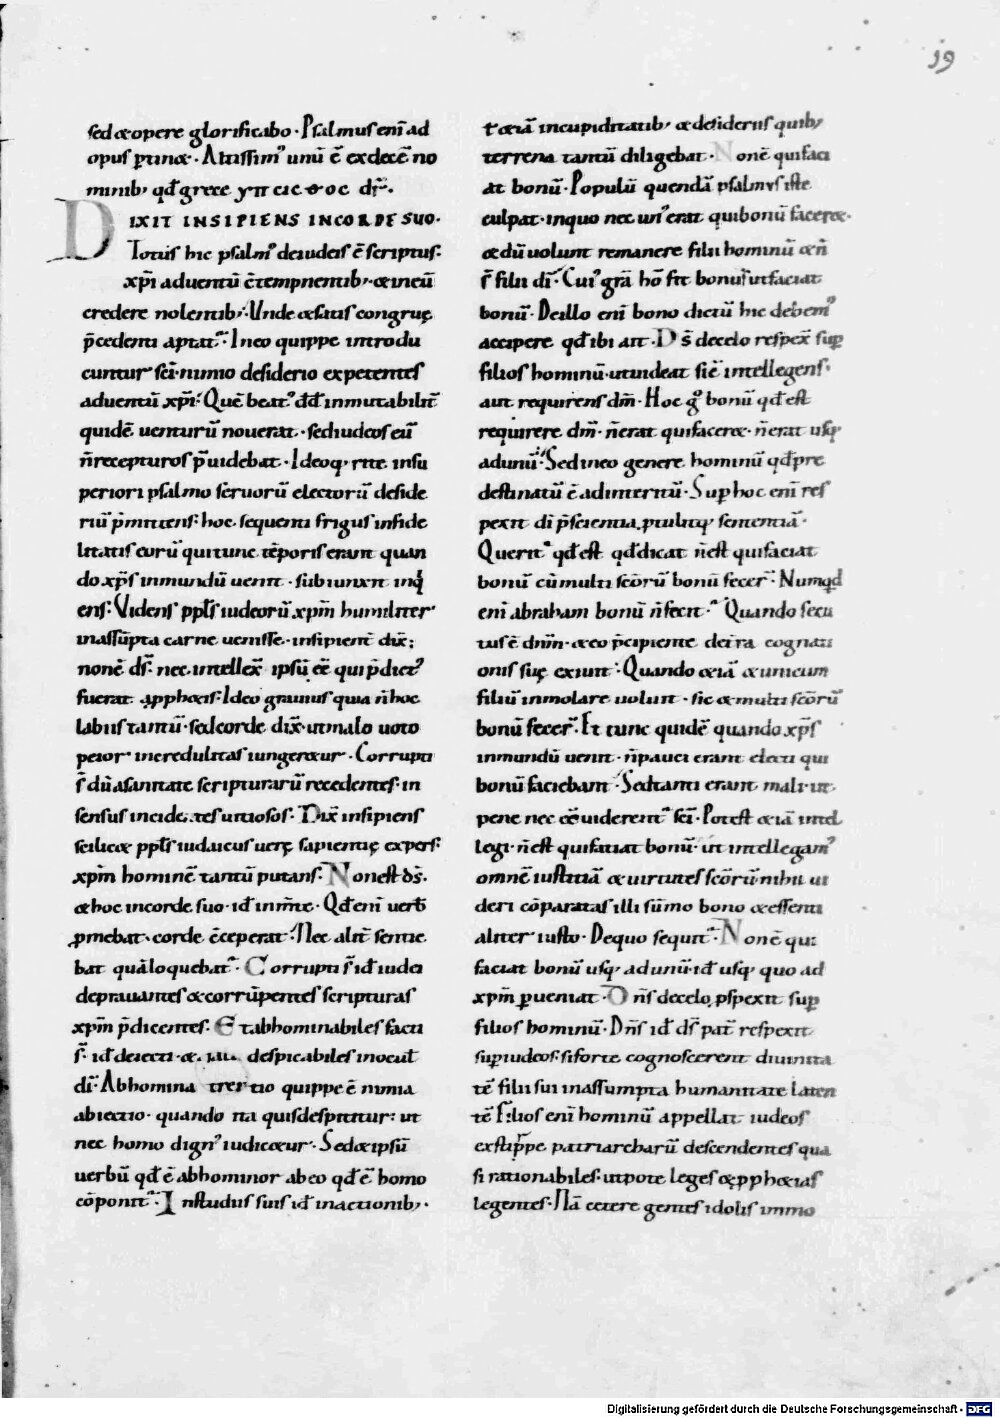 19
sed & opere glorificabo · Psalmus enī ad
opus ꝑtin& · Altissim᾿ unū ē ex decē no
minib; qđ grece yπcιcτoc dr̄ ·
DIXIT INSIPIENS IN CORDE SUO ·
Totus hic psalm᾿ de iudeis ē scriptus ·
xp̄i aduentū c̄tempnentib; · & in eū
credere nolentib; · Unde & satis congruę
p̄cedenti aptat᾿ · In eo quippe introdu
cuntur sc̄i · nimio desiderio expetentes
aduentū xp̄i · Quē beat᾿ dd̄ inmutabilit̄
quidē uenturū nouerat · sed iudeos eū
n̄ recepturos p̄uidebat · Ideoq; rite in su
periori psalmo seruorū electorū deside
riū p̄mittens · hoc sequenti frigus infide
litatis eorū qui tunc tēporis erant quan
do xp̄s in mundū uenit · subiunxit inqi
ens · Videns ppl̄s iudeorū xp̄m humiliter
in assūpta carne uenisse · insipient̄ dix̄ ;
non ē ds̄ · nec intellex̄ ipsū eē qui p̄dict᾿
fuerat a pph&is · Ideo grauius quia n̄ hoc
labiis tantū · sed corde dix̄ · ut malo uoto
peior incredulitas iunger&ur · Corrupti
s̄ dū a sanitate scripturarū recedentes · in
sensus incidentes uitiosos · Dix̄ insipiens
scilic& ppl̄s iudaicus uerę sapientię expers ·
xp̄m hominē tantū putans · Non est ds̄ ·
& hoc in corde suo · id̄ in m̄te · Qđ enī uerb̄
ꝓmebat · corde c̄ceperat · Nec alit̄ sentie
bat quā loquebat᾿ · Corrupti s̄ id̄ iudei
deprauantes & corrūpentes scripturas
xp̄m p̄dicentes · Et abhominabiles facti
s̄ · id̄ deiecti · & despicabiles in oculis
di᾿ · Abhominatio quippe ē nimia
abiectio · quando ita quis despicitur · ut
nec homo dign᾿ iudic&ur · Sed & ipsū
uerbū qđ ē abhominor ab eo qđ ē homo
cōponit᾿ · In studiis suis id̄ in actionib; ·
t &iā in cupiditatib; & desideriis quib;
terrena tantū diligebat · Non ē qui faci
at bonū · Populū quendā psalmus iste
culpat · in quo nec un᾿ erat qui bonū facer& ·
& dū uolunt remanere filii hominū & n̄
s̄ filii di᾿ · Cui᾿ gr̄a ho᾿ fit bonus ut faciat
bonū · De illo enī bono dictū hic debem᾿
accipere qđ ibi ait · Ds̄ de celo respex̄ suꝑ
filios hominū · ut uideat si ē intellegens ·
aut requirens dm̄ · Hoc g᾿ bonū qđ est
requirere dm̄ · n̄ erat qui facer& · n̄ erat usq;
ad unū · Sed in eo genere hominū qđ pre
destinatū ē ad interitū · Suꝑ hoc enī res
pexit di᾿ p̄scientia, ꝓtulitq; sententiā ·
Querit᾿ qđ est qđ dicat n̄ est qui faciat
bonū cū multi sc̄orū bonū fecer᾿ · Numqđ
enī abraham bonū n̄ fecit · Quando secu
tus ē dn̄m · & eo p̄cipiente de t̄ra cognati
onis suę exiuit · Quando &iā & unicum
filiū inmolare uoluit · sic & multi sc̄orū
bonū fecer᾿ · Et tunc quidē quando xp̄s
in mundū uenit · n̄ pauci erant electi qui
bonū faciebant · Sed tanti erant mali · ut
pene nec eē uiderent᾿ sc̄i · Potest &iā intel
legi · n̄ est qui faciat bonū · ut intellegam᾿
omnē iustitiā & uirtutes sc̄orū nihil ui
deri cōparatas illi sūmo bono & essenti
aliter iusto · De quo sequit᾿ · Non ē qui
faciat bonū usq; ad unū · id̄ usq; quo ad
xp̄m ꝑueniat · Dn̄s de celo ꝓspexit suꝑ
filios hominū · Dn̄s id̄ ds̄ pat̄ respexit
suꝑ iudeos · si forte cognoscerent diuinita
tē filii sui in assumpta humanitate laten
tē · Filios enī hominū appellat iudeos
ex stirpe patriarcharū descendentes qua
si rationabiles · utpote leges & pph&ias
legentes · Nā cetere gentes idolis immo
Digitalisierung gefördert durch die Deutsche Forschungsgemeinschaft - DFG